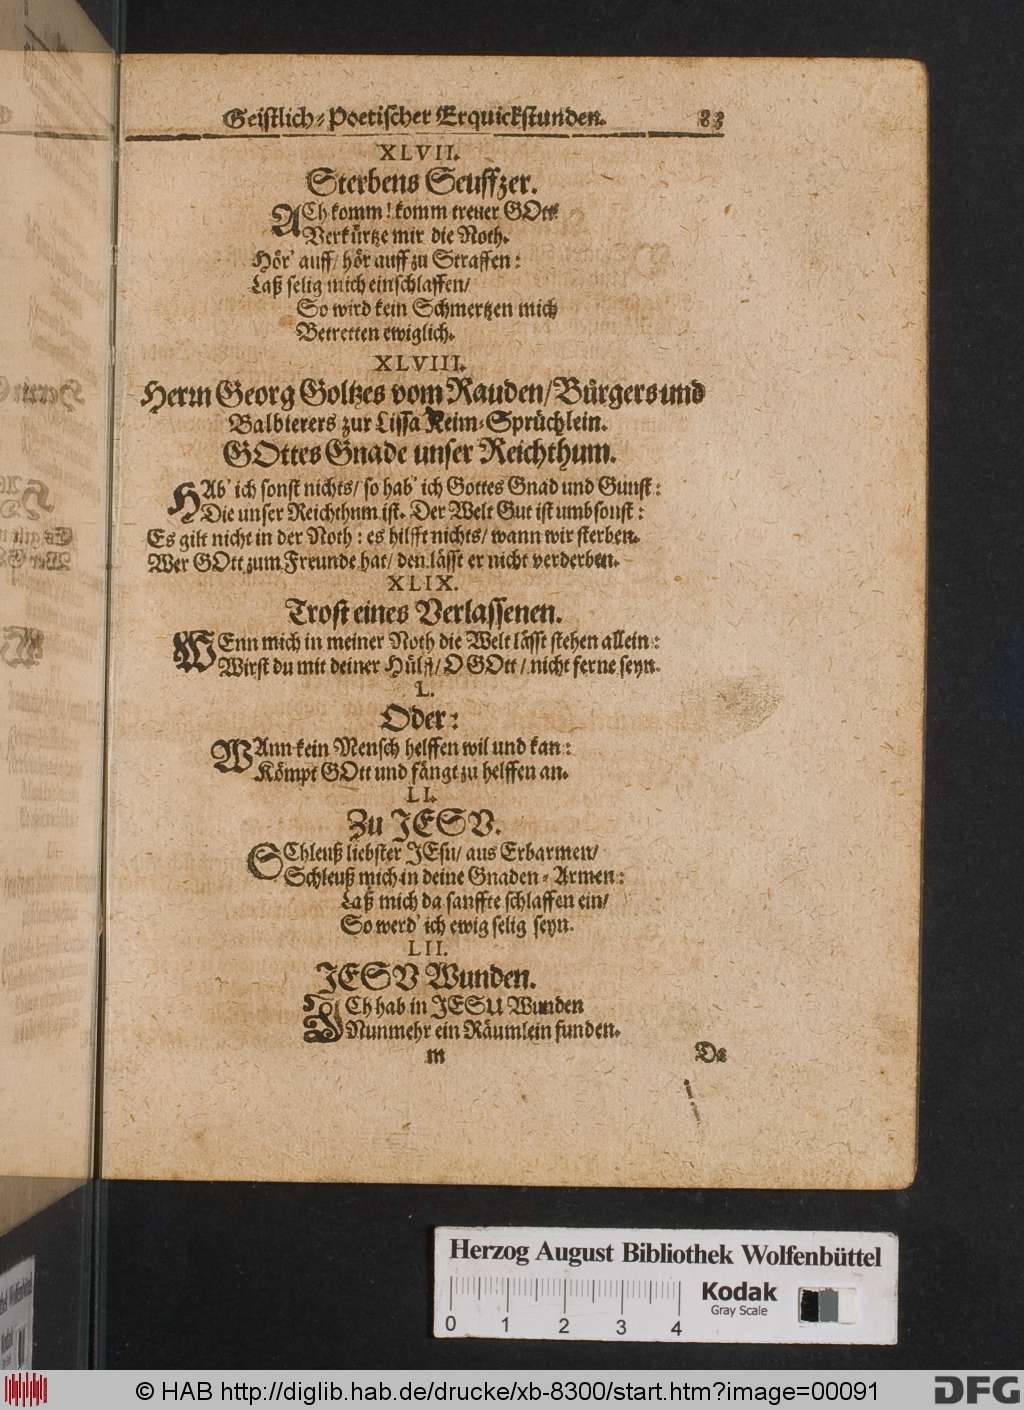 Geistlich-Poetischer Erquickstunden. 83
XLVII.
Sterbens Seuffzer.
ACh komm! komm treuer GOtt
Verkürtze mir die Noth.
Hör' auff/ hör auff zu Straffen:
Laß selig mich einschlaffen/
So wird kein Schmertzen mich
Betretten ewiglich.
XLVIII.
Herrn Georg Goltzes vom Rauden/ Bürgers und
Balbierers zur Lissa Reim-Sprüchlein.
GOttes Gnade unser Reichthum.
HAb' ich sonst nichts/ so hab' ich Gottes Gnad und Gunst:
Die unser Reichthum ist. Der Welt Gut ist umbsonst:
Es gilt nicht in der Noth: es hilfft nichts/ wann wir sterben.
Wer GOtt zum Freunde hat/ den lässt er nicht verderben.
XLIX.
Trost eines Verlassenen.
WEnn mich in meiner Noth die Welt lässt stehen allein:
Wirst du mit deiner Hülff/ O GOtt/ nicht ferne seyn.
L.
Oder:
WAnn kein Mensch helffen wil und kan:
Kömpt GOtt und fängt zu helffen an.
LI.
Zu JESV.
SChleuß liebster JEsu/ aus Erbarmen/
Schleuß mich in deine Gnaden-Armen:
Laß mich da sanffte schlaffen ein/
So werd' ich ewig selig seyn.
LII.
JESV Wunden.
ICh hab in JESU Wunden
Nunmehr ein Räumlein funden.
m Da
Herzog August Bibliothek Wolfenbüttel
Kodak
Gray Scale
0 1 2 3 4
© HAB http://diglib.hab.de/drucke/xb-8300/start.htm?image=00091
DFG